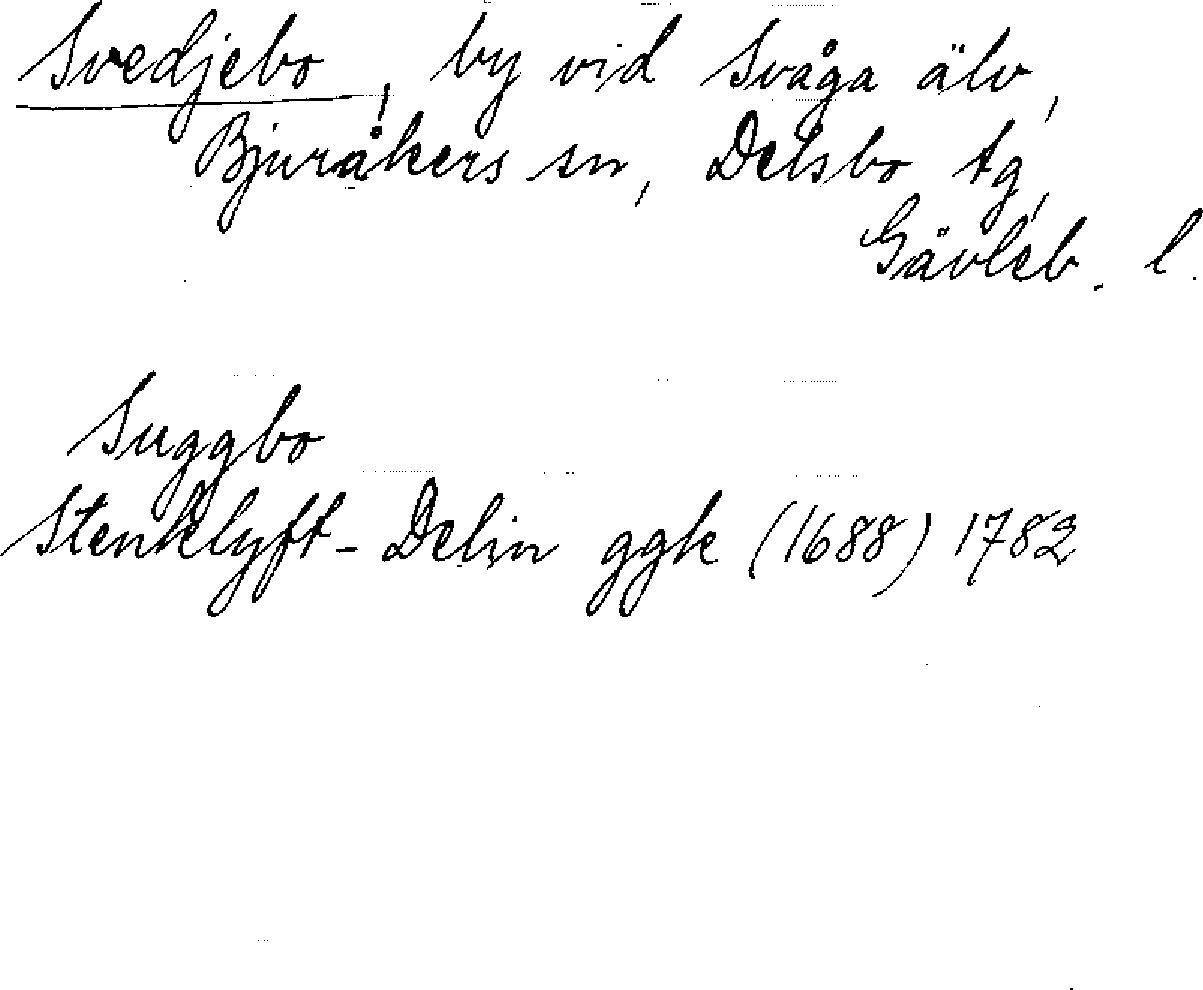 Svedjebo, by vid Svåga älv,
Bjuråkers sn, Delsbo tg,
Gävleb. l.
Suggbo
Stenklyft - Delin ggk (1688) 1782